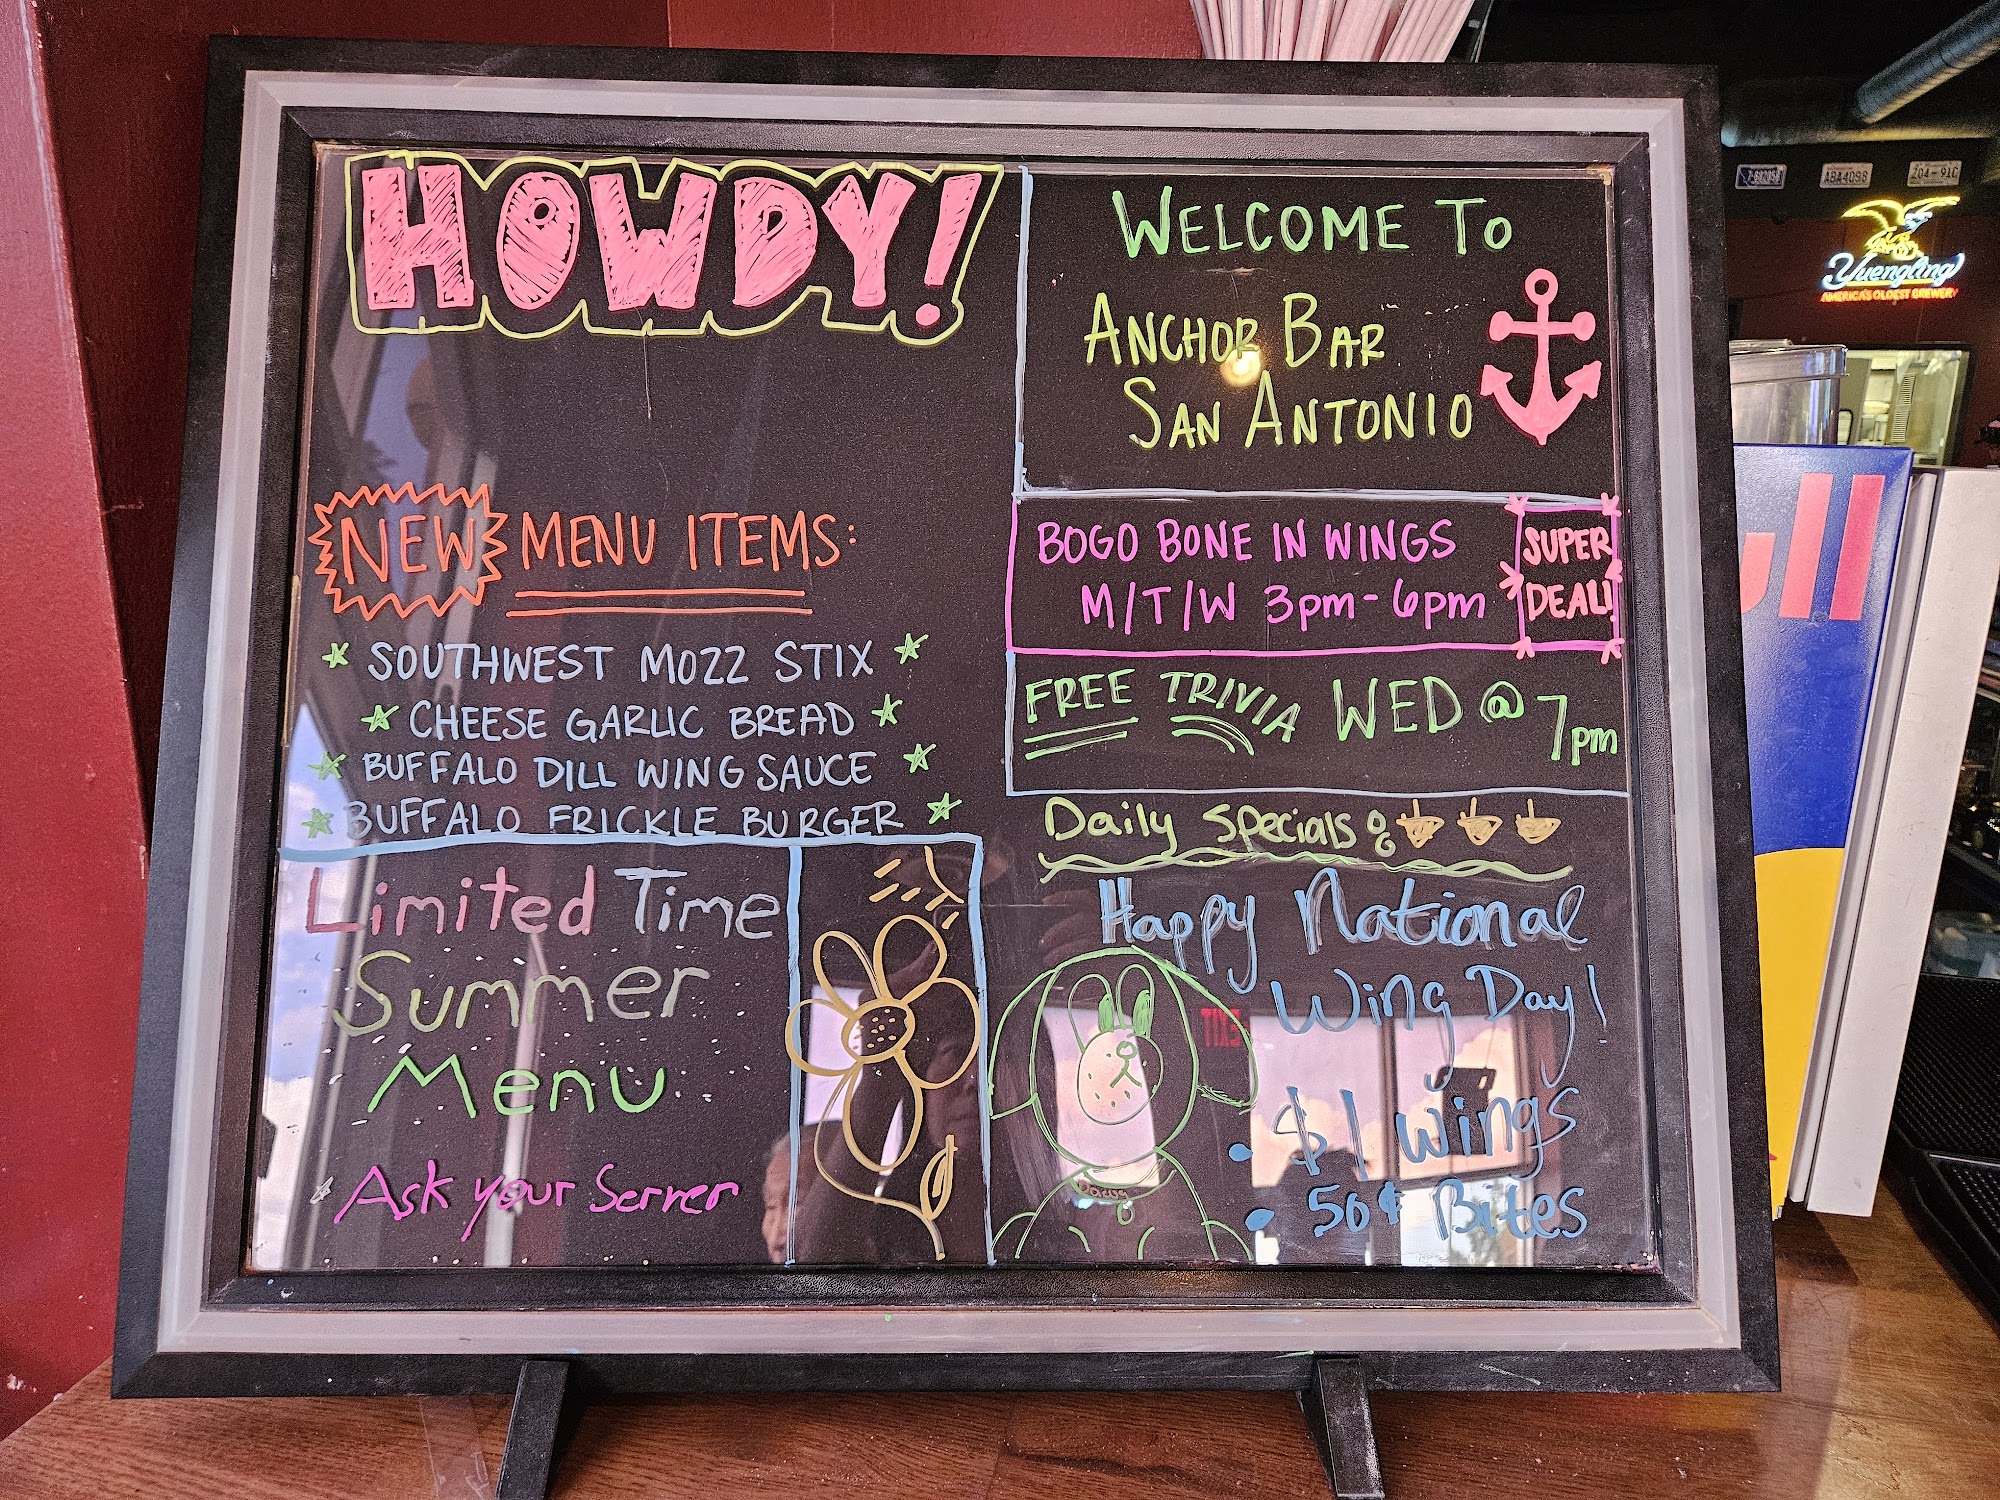 HOWDY!
NEW MENU ITEMS:
SOUTHWEST MOZZ STIX
CHEESE GARLIC BREAD
BUFFALO DILL WING SAUCE
BUFFALO FRICKLE BURGER
Limited Time
Summer
Menu
Ask your Server
WELCOME TO
ANCHOR BAR
SAN ANTONIO
BOGO BONE IN WINGS
M/T/W 3pm-6pm
SUPER
DEAL!
FREE TRIVIA WED @ 7pm
Daily Specials
Happy National
Wing Day!
• $1 wings
• 50¢ Bites
EXIT
ABA4098
204-91C
Yuengling
AMERICA'S OLDEST BREWERY
ull